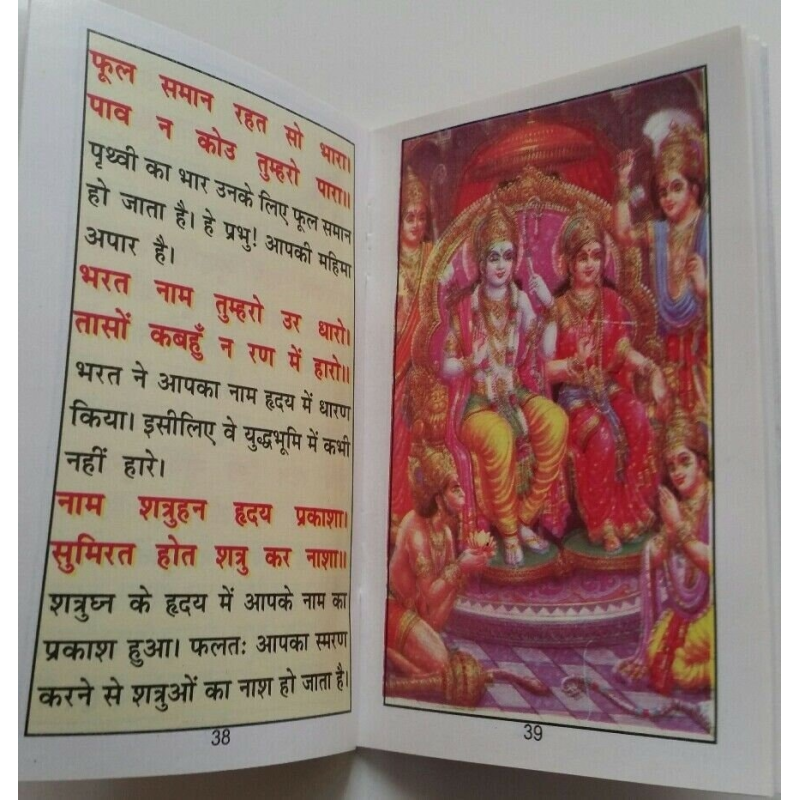 फूल समान रहत सो भारा।
पाव न कोउ तुम्हरो पारा॥
पृथ्वी का भार उनके लिए फूल समान
हो जाता है। हे प्रभु! आपकी महिमा
अपार है।
भरत नाम तुम्हरो उर धारो।
तासों कबहुँ न रण में हारो॥
भरत ने आपका नाम हृदय में धारण
किया। इसीलिए वे युद्धभूमि में कभी
नहीं हारे।
नाम शत्रुहन हृदय प्रकाशा।
सुमिरत होत शत्रु कर नाशा॥
शत्रुघ्न के हृदय में आपके नाम का
प्रकाश हुआ। फलतः आपका स्मरण
करने से शत्रुओं का नाश हो जाता है।
38
39